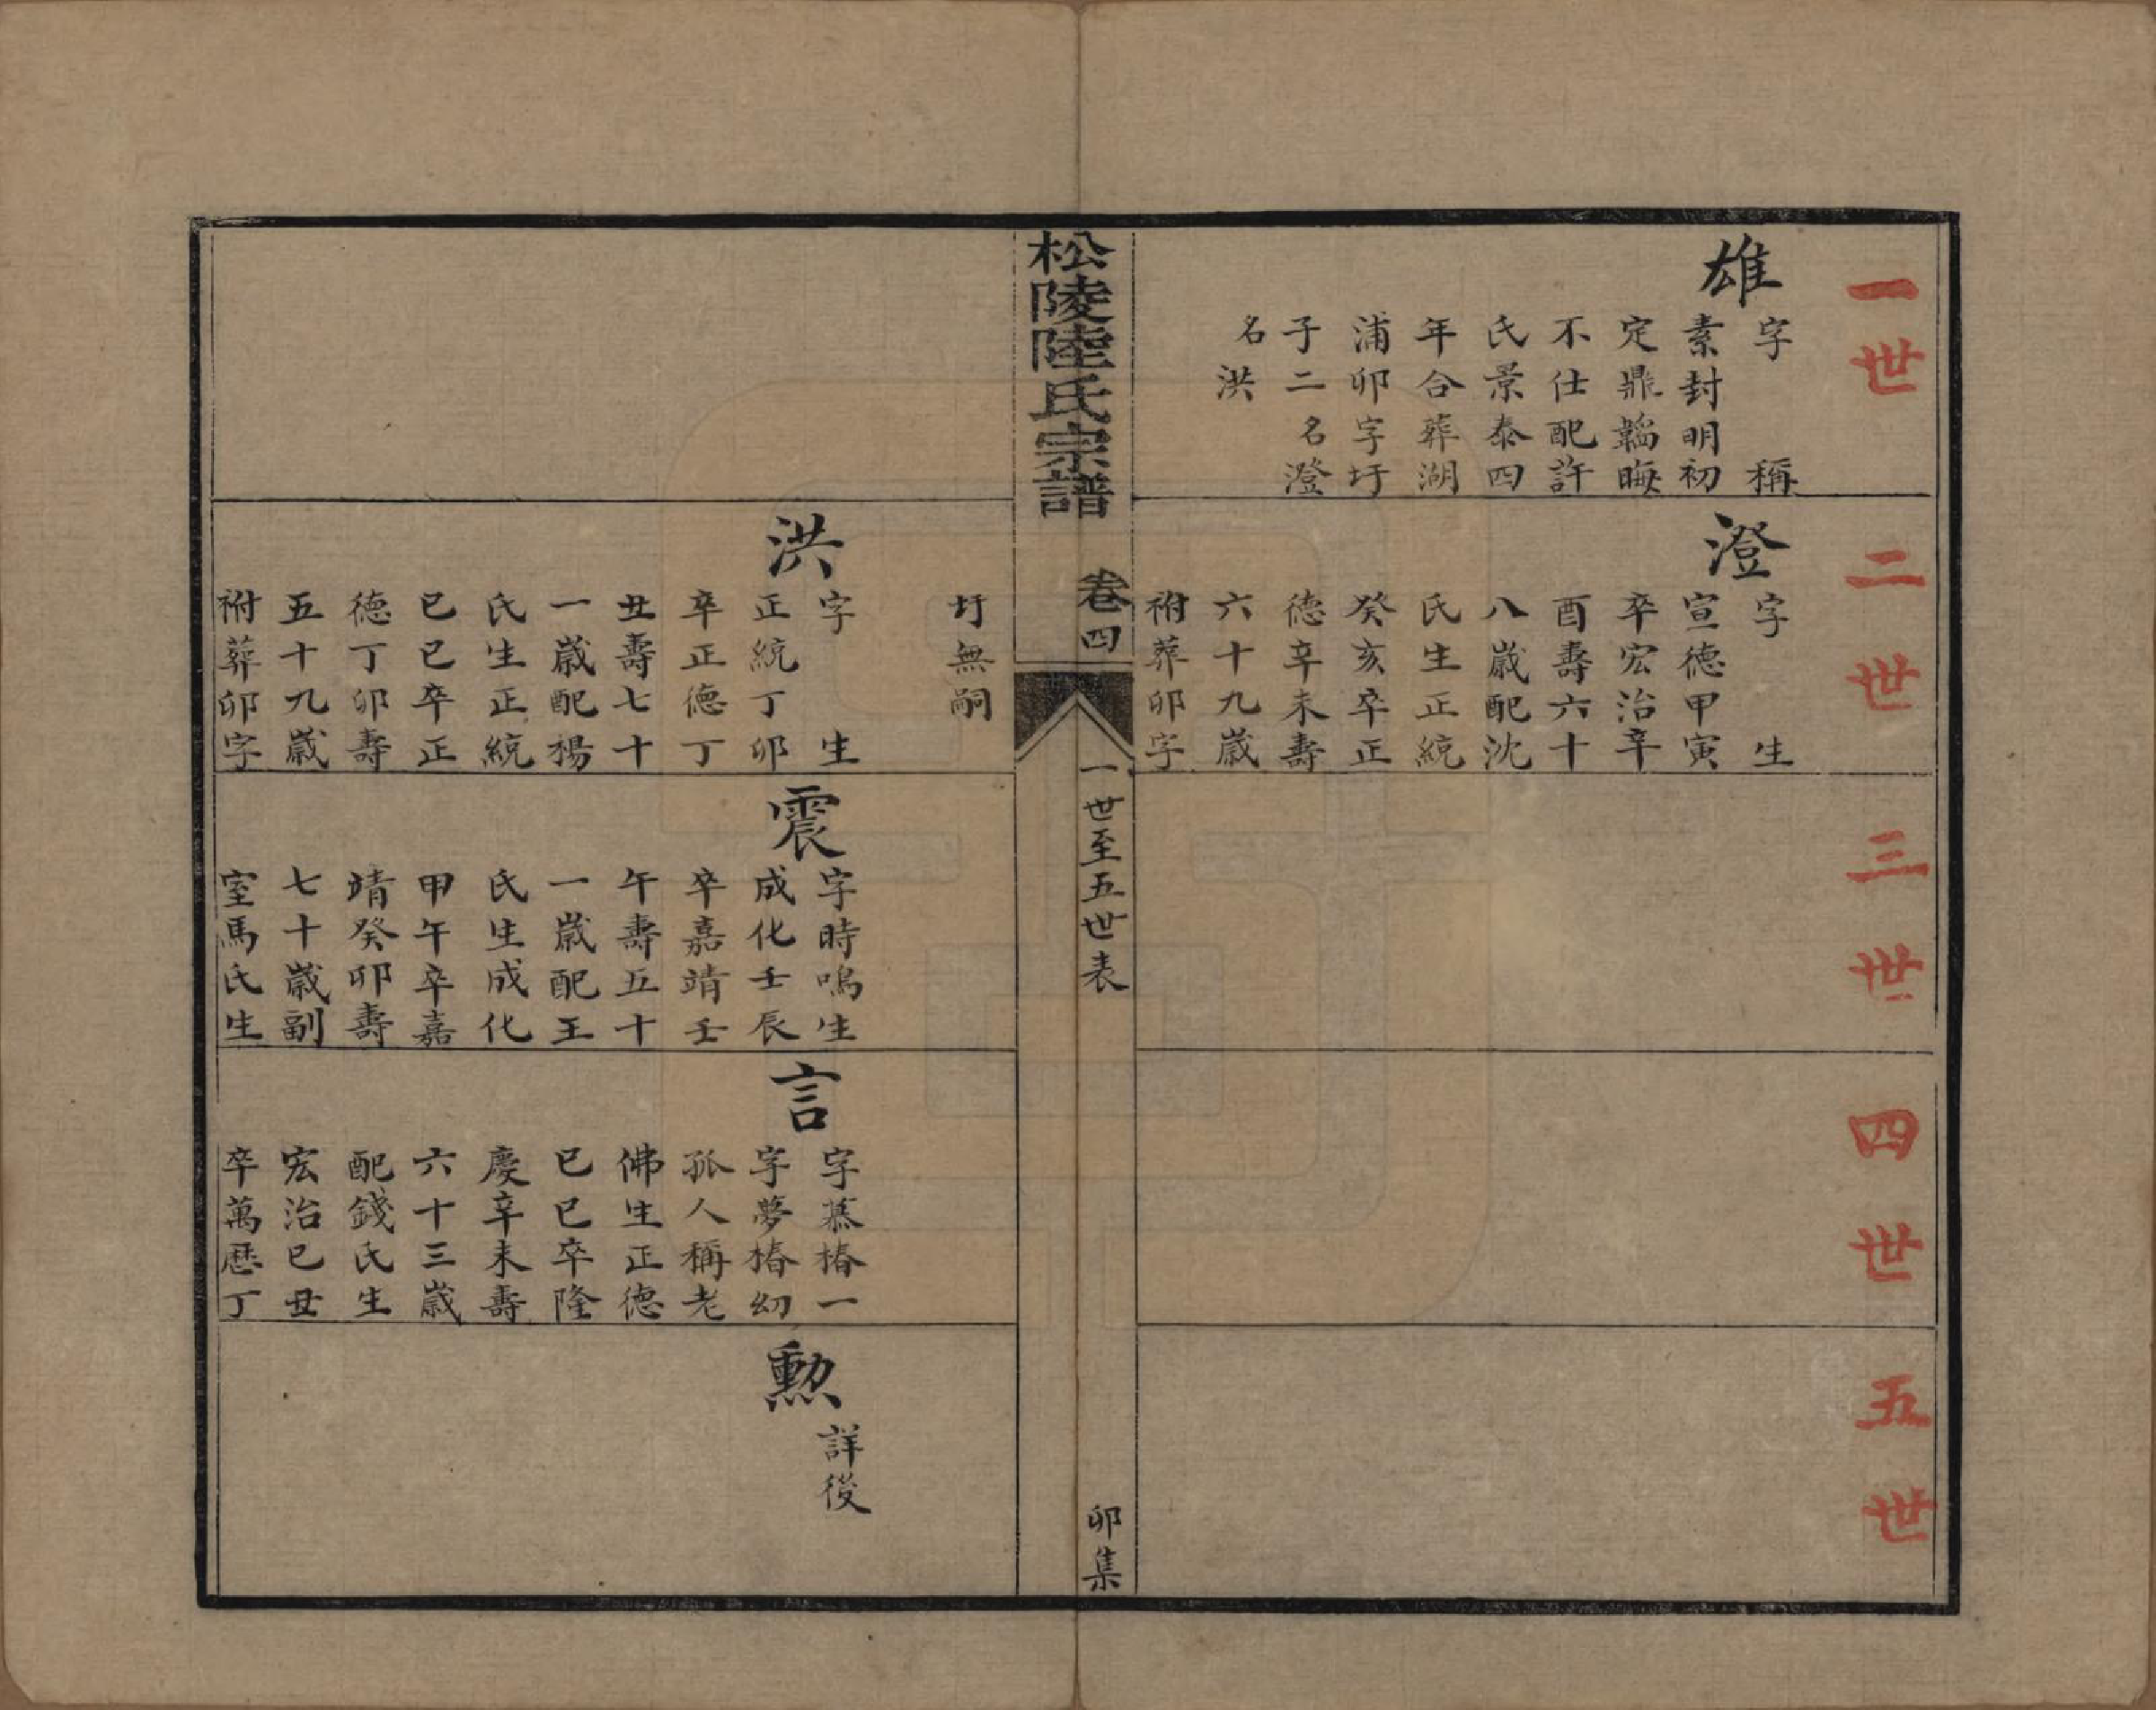 一世
雄
字　稱
素封明初
定鼎韜晦
不仕配許
氏景泰四
年合葬湖
浦卯字圩
子二名澄
名洪
二世
澄
字　生
宣德甲寅
卒宏治辛
酉壽六十
八歲配沈
氏生正統
癸亥卒正
德辛未壽
六十九歲
祔葬卯字
三世
四世
五世
松陵陸氏宗譜
卷四
一世至五世表
卯集
圩無嗣
洪
字　生
正統丁卯
卒正德丁
丑壽七十
一歲配楊
氏生正統
己巳卒正
德丁卯壽
五十九歲
祔葬卯字
震
字時鳴生
成化壬辰
卒嘉靖壬
午壽五十
一歲配王
氏生成化
甲午卒嘉
靖癸卯壽
七十歲副
室馬氏生
言
字慕椿一
字夢椿幼
孤人稱老
佛生正德
己巳卒隆
慶辛未壽
六十三歲
配錢氏生
宏治己丑
卒萬歷丁
勲
詳後